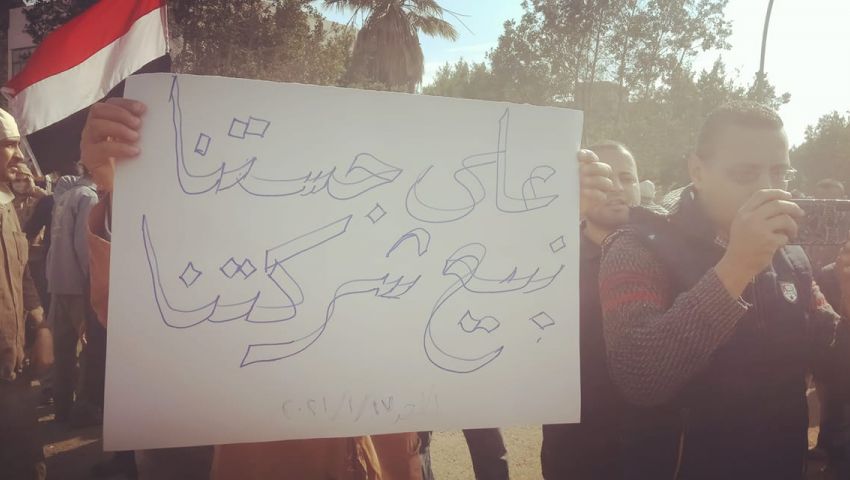 على جستنا
نبيع شركتنا
الأحد ١٧/١/٢٠٢١